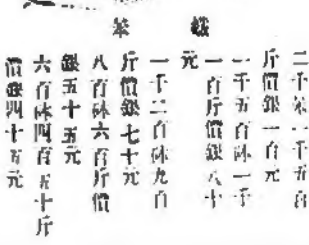 笨
二千笨一千五百
斤價銀一百元
一千五百砵一千
一百斤價銀八十
元
一千二百砵九百
斤價銀七十元
八百砵六百斤價
銀五十五元
六百砵四百五十斤
價銀四十五元